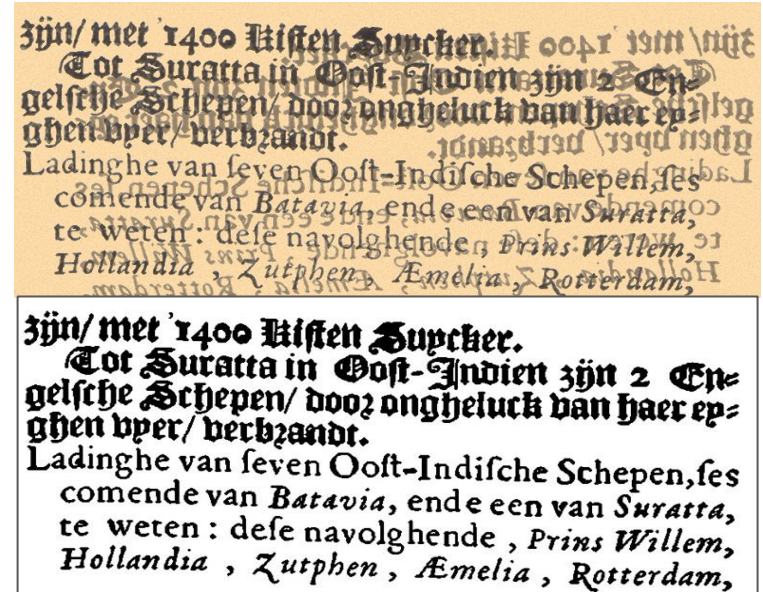 zijn/ met 1400 Kisten Suycker.
Tot Suratta in Oost-Indien zijn 2 En-
gelsche Schepen/ door ongheluck van haer ey-
ghen vyer/ verbrandt.
Ladinghe van ſeven Ooſt-Indiſche Schepen, ſes
comende van Batavia, ende een van Suratta,
te weten : deſe navolghende , Prins Willem,
Hollandia , Zutphen , Æmelia , Rotterdam,
zijn/ met 1400 Kisten Suycker.
Tot Suratta in Oost-Indien zijn 2 En-
gelsche Schepen/ door ongheluck van haer ey-
ghen vyer/ verbrandt.
Ladinghe van ſeven Ooſt-Indiſche Schepen, ſes
comende van Batavia, ende een van Suratta,
te weten : deſe navolghende , Prins Willem,
Hollandia , Zutphen , Æmelia , Rotterdam,